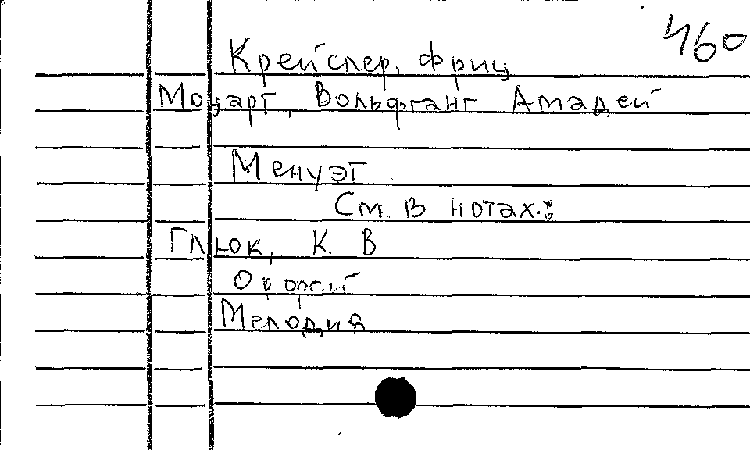 460
Крейслер, Фриц
Моцарт, Вольфганг Амадей
Менуэт
См. в нотах:
Глюк, К. В
Орфей
Мелодия